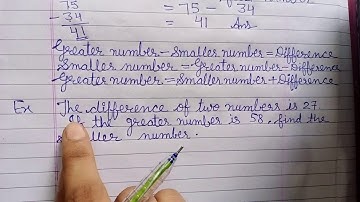 75 = 75 - 34
- 34 = 41 Ans
41
Greater number - Smaller number = Difference
Smaller number = Greater number - Difference
Greater number = Smaller number + Difference
Ex The difference of two numbers is 27
the greater number is 58. find the
number.